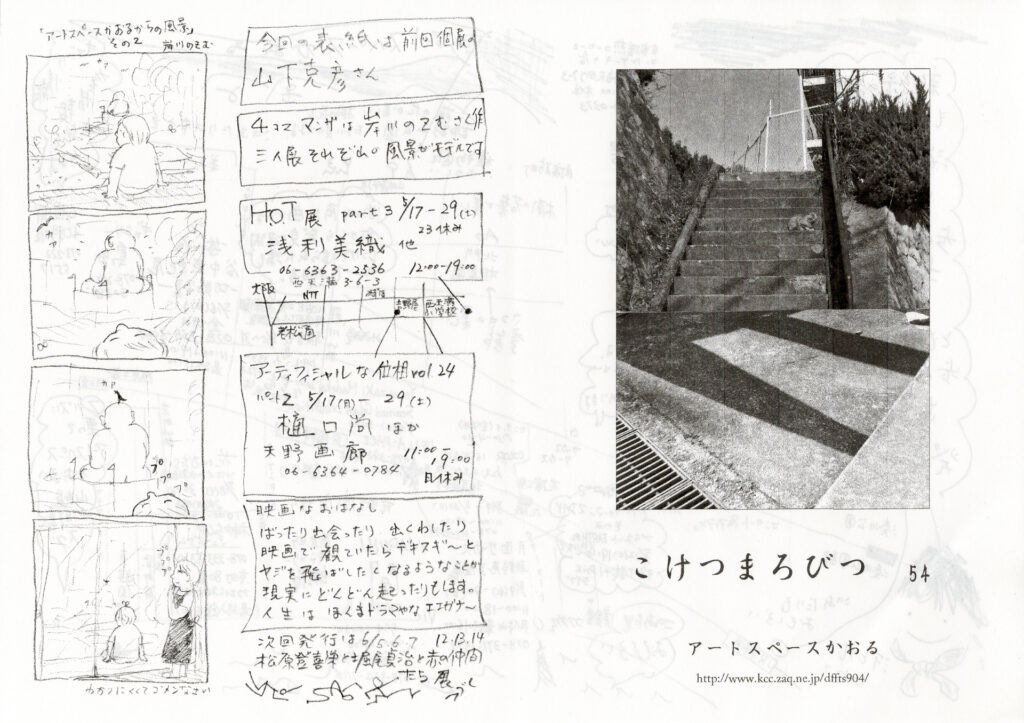 「アートスペースかおるからの風景」
その2 岸川のぞむ
カァ
カァ
カァ
プ
プ
プ
プ
プ
プ
わかりにくくてゴメンなさい
今回の表紙は前回個展の
山下克彦さん
4コマ マンガは岸川のぞむさん作
三人展それぞれの風景がモデルです
HOT展 part3 5/17-29(土)
23休み
浅利美織 他
06-6363-2536 12:00-19:00
西天満3-6-3
大阪
NTT
老松通
西天満小学校
アーティフィシャルな位相vol 24
パート2 5/17(月)-29(土)
樋口尚 ほか
天野画廊 11:00-19:00
06-6364-0784 日休み
映画なおはなし
ばったり出会ったり、出くわしたり
映画で観ていたらデキスギ〜と
ヤジを飛ばしたくなるようなことが
現実にどんどん起ったりもします。
人生は
次回発行は6/5.6.7 12.13.14
松原登喜栄と堀尾貞治と赤の仲間
たち展
こけつまろびつ 54
アートスペースかおる
http://www.kcc.zaq.ne.jp/dffts904/